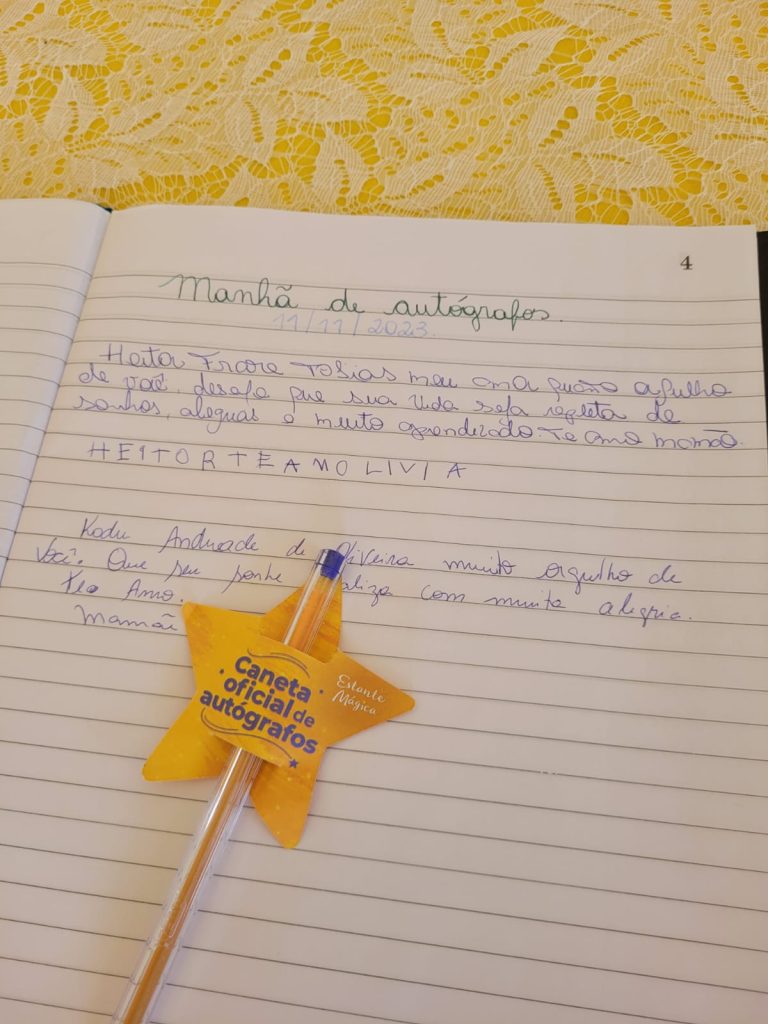 4
Manhã de autógrafos.
11/11/2023.
Heitor Tobias meu
de você, desejo que sua vida seja repleta de
sonhos, alegrias e muito aprendizado. Te amo mamãe.
HEITOR TE AMO LIVIA
Kadu Andrade de Oliveira muito orgulho de
você. Que seu sonho com muita alegria.
Teo Amo.
Mamãe
Caneta
oficial de
autógrafos
Estante
Mágica